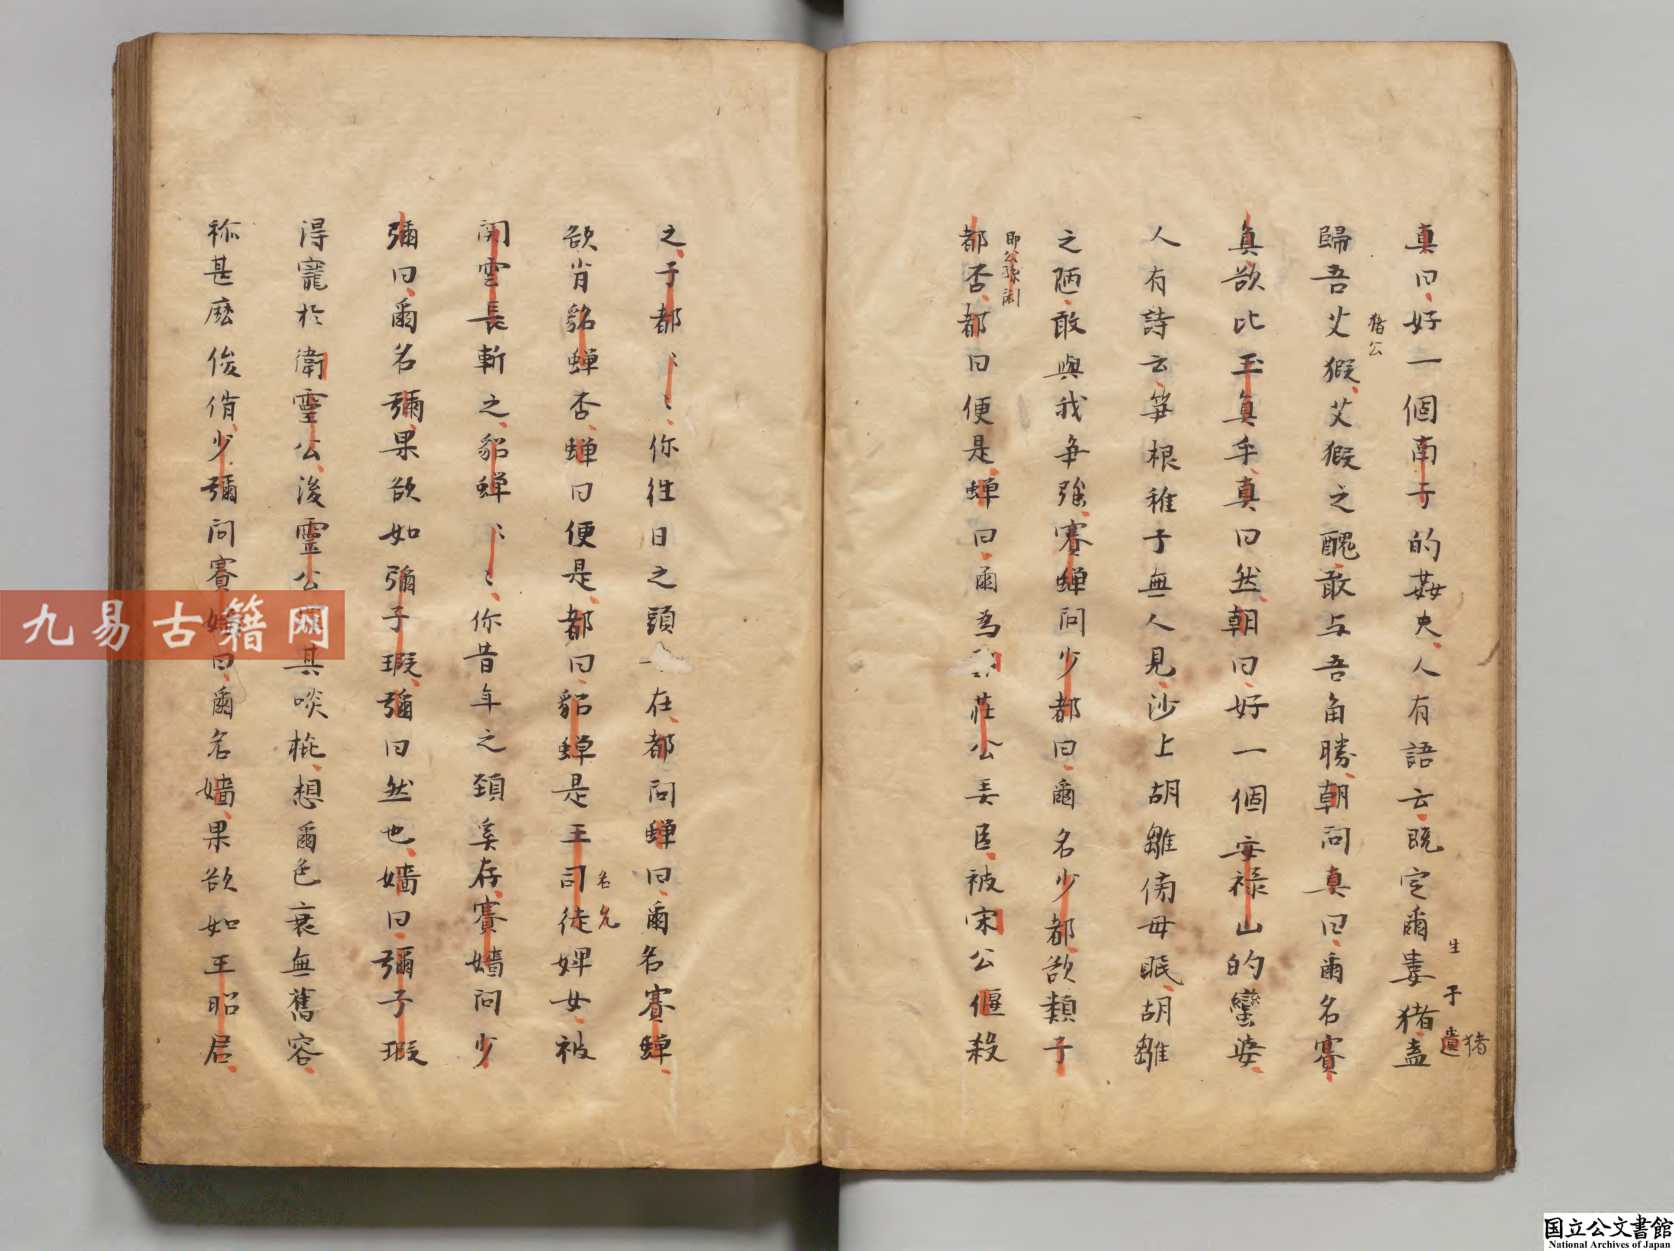 真曰好一個南子的姦夫人有語云既定爾婁猪盍
生子遺
猪
猪公
歸吾艾猳艾猳之醜敢与吾角勝朝问真曰爾名賽
真欲比玉真乎真曰然朝曰好一個安禄山的蠻婆
人有詩云笋根稚子無人見沙上胡雛傍母眠胡雛
之陋敢與我争強賽蟬问少都曰爾名少都欲類子
即公孫閼
都否都曰便是蟬曰爾為莊公弄臣被宋公偃殺
之子都〻〻你往日之頭在都问蟬曰爾名賽蟬
欲肖貂蟬否蟬曰便是都曰貂蟬是王司徒婢女被
名允
関雲長斬之貂蟬〻〻你昔年之頸奚存賽嬙问少
彌曰爾名彌果欲如彌子瑕彌曰然也嬙曰彌子瑕
得寵於衛靈公後靈公其啖桃想爾色衰無舊容
称甚麽俊俏少彌问賽嬙曰爾名嬙果欲如王昭君
九易古籍网
国立公文書館
National Archives of Japan